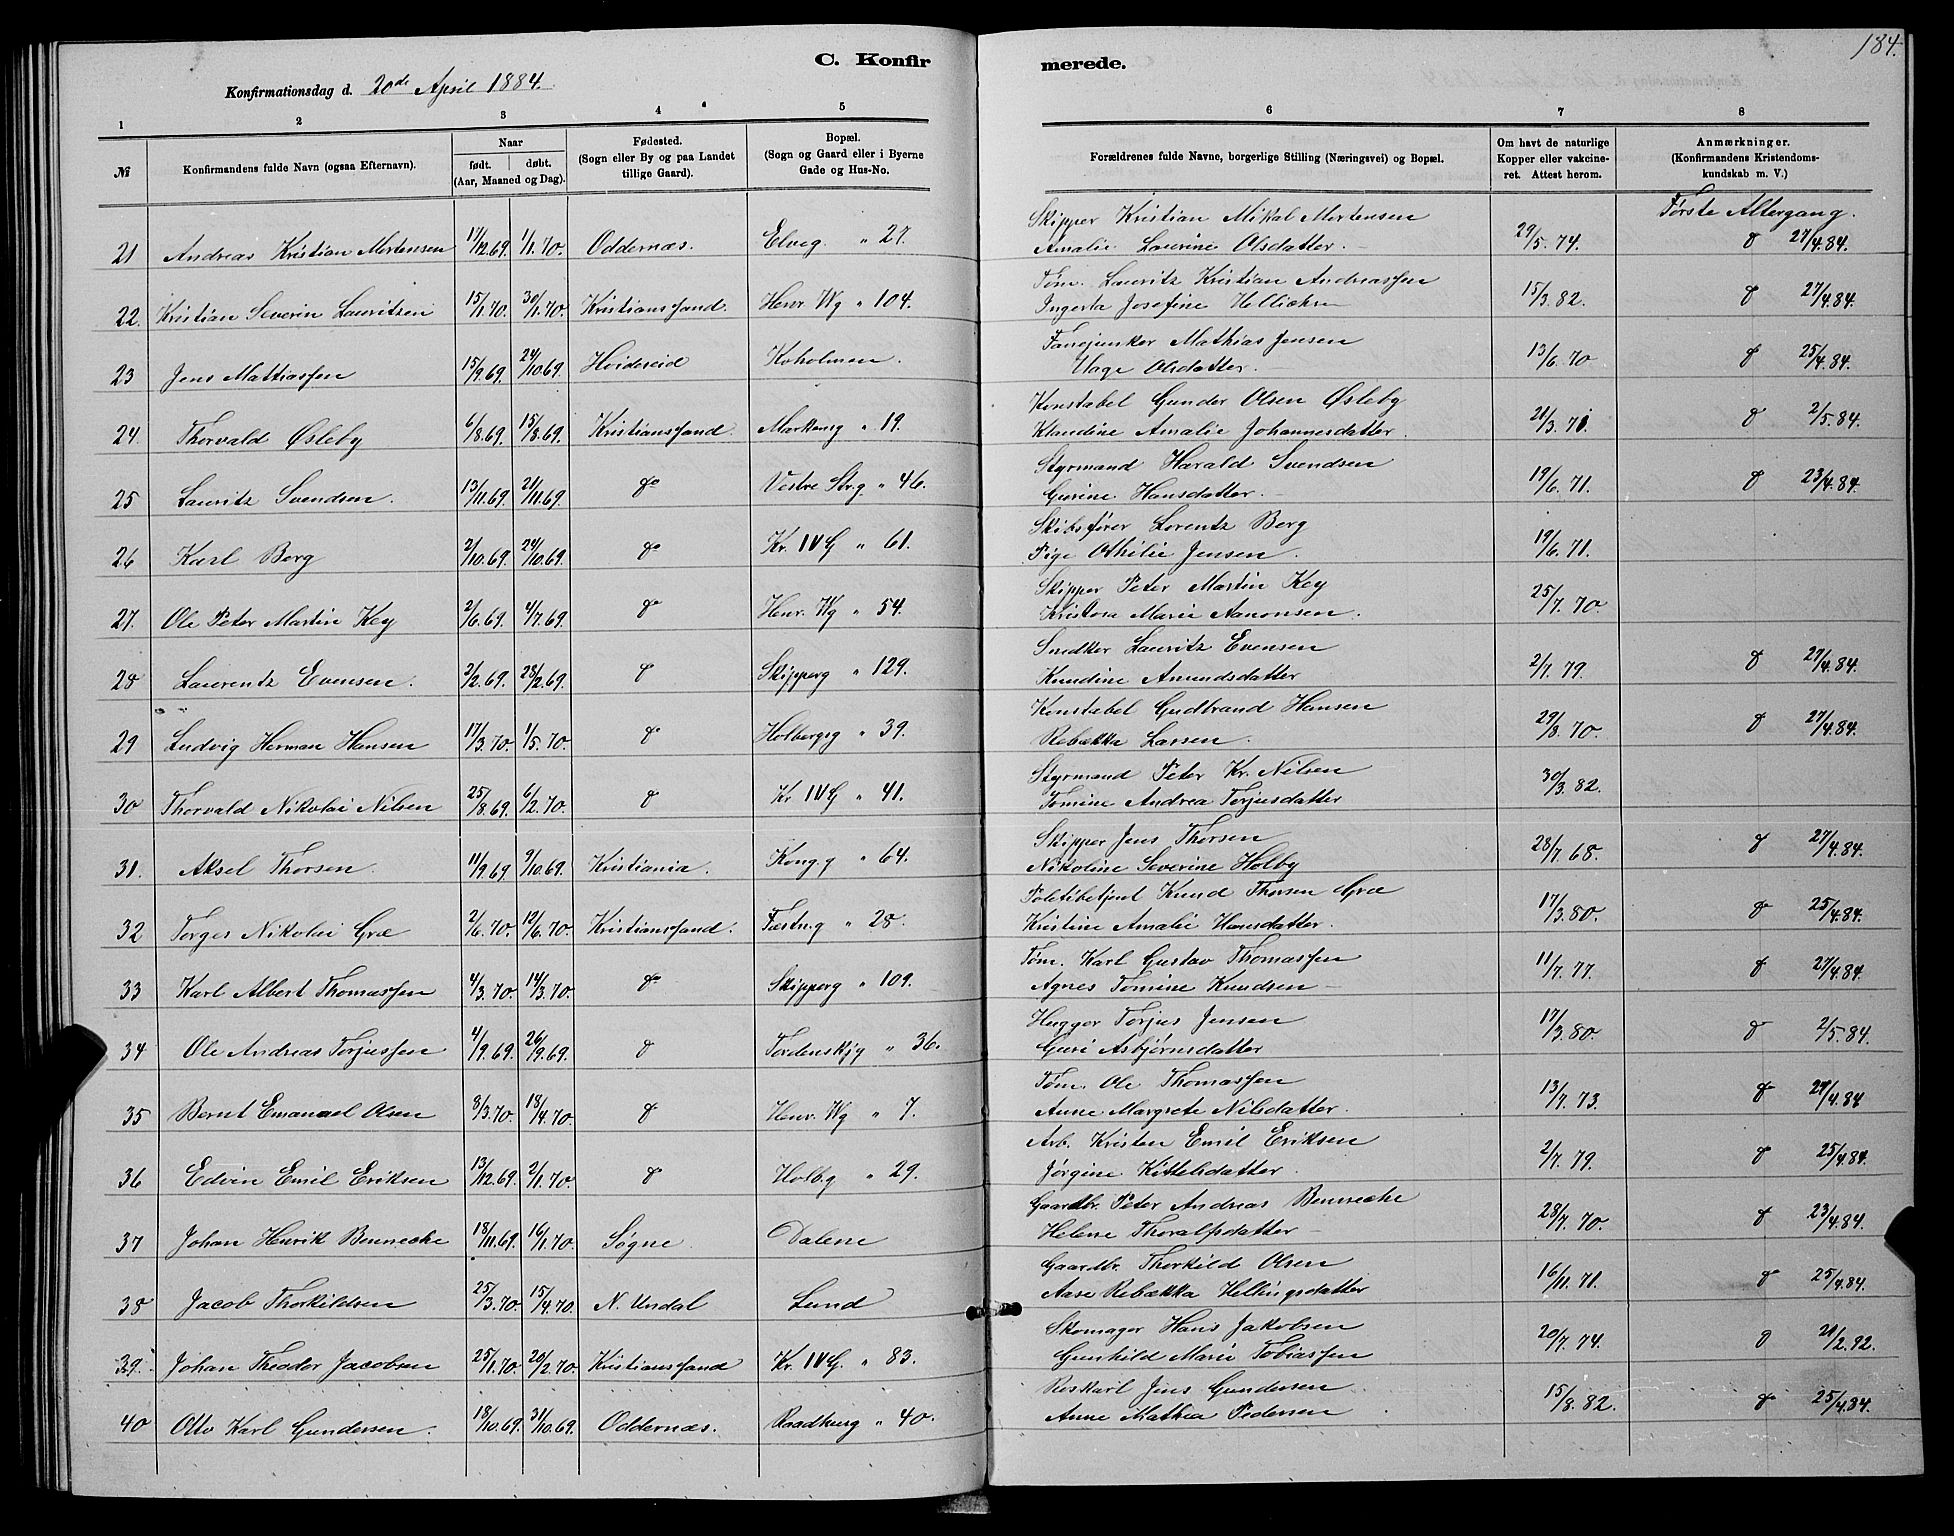 184.
C. Konfirmerede.
Konfirmationsdag d. 20de April 1884.
1 2 3 4 5 6 7 8
№ Konfirmandens fulde Navn (ogsaa Efternavn). Naar født. døbt. (Aar, Maaned og Dag). Fødested. (Sogn eller By og paa Landet tillige Gaard). Bopæl. (Sogn og Gaard eller i Byerne Gade og Hus-No. Forældrenes fulde Navne, borgerlige Stilling (Næringsvei) og Bopæl. Om havt de naturlige Kopper eller vakcineret. Attest herom. Anmærkninger. (Konfirmandens Kristendomskundskab m. V.)
Første Altergang.
Skipper Kristian Mikal Mortensen
21 Andreas Kristian Mortensen 17/12.69. 1/1.70. Oddernæs. Elveg. " 27. Amalie Laurine Olsdatter. 29/5.74. d 27/4.84.
Tøm. Lauritz Kristian Andreassen
22. Kristian Severin Lauritzen 15/1.70. 30/1.70. Kristianssand. Henr. Wg " 104. Ingerta Josefine 15/3.82. d 27/4.84.
Fanejunker Mathias Jensen
23 Jens Mathiassen 15/9.69. 24/10.69 Hvideseid Koholmen. Hage Olsdatter. 13/6.70 d 25/4.84.
Konstabel Gunder Olsen Øsleby
24. Thorvald Øsleby 6/8.69. 15/8.69. Kristianssand. Markensg " 19. Klaudine Amalie Johannesdatter. 21/3.71. d 2/5.84.
Styrmand Harald Svendsen
25 Lauritz Svendsen. 13/11.69. 21/11.69. do Vestre Str.g " 46. Gurine Hansdatter. 19/6.71. d 23/4.84.
Skibsfører Lorentz Berg
26 Karl Berg 2/10.69. 24/10.69. do Kr. IV G " 61. Pige Othilie Jensen. 19/6.71.
Skipper Peter Martin Key
27. Ole Peter Martin Key 2/6.69. 4/7.69. d Henr. Wg " 54. Kristosa Marie Aanonsen. 25/7.70
Snedker Lauritz Evensen
28 Laurentz Evensen. 2/2.69. 28/2.69. d Skipperg " 129. Knudine Amundsdatter 2/7.79. d 27/4.84.
Konstabel Gudbrand Hansen
29 Ludvig Herman Hansen 17/3.70. 1/5.70. d Holbergsg " 39. Rebækka Larsen. 29/8.70. d 27/4.84.
Styrmand Peter Kr. Nilsen
30 Thorvald Nikolai Nilsen 25/8.69. 6/2.70. d Kr IV G " 41. Tomine Andrea Torjusdatter 30/3.82.
Skipper Jens Thorsen
31. Aksel Thorsen. 11/9.69 9/10.69. Kristiania. Kong.g " 64. Nikoline Severine Holby 28/7.68. d 27/4.84.
Politibetjent Knud Thorsen Græ
32 Torges Nikolai Græ 2/6.70. 12/6.70. Kristianssand. Fæstn.g " 28. Kristine Amalie Hansdatter. 17/3.80. d 25/4.84.
Tøm. Karl Gustav Thomassen
33 Karl Albert Thomassen 4/3.70. 14/3.70. do Skipperg " 109. Agnes Tomine Knudsen 11/7.77. d 27/4.84.
Hugger Torjus Jensen
34 Ole Andreas Torjussen 4/9.69. 26/9.69. d Tordenskjg " 36. Guri Asbjørnsdatter 17/3.80. d 2/5.84.
Tøm. Ole Thomassen
35 Bernt Emanuel Olsen 8/3.70. 18/4.70. d Henr. Wg " 7. Anne Margrete Nilsdatter. 13/7.73. d 27/4.84
Arb. Kristen Emil Eriksen
36 Edvin Emil Eriksen 13/12.69. 2/1.70. d Holb.g " 29. Jørgine Kittelsdatter. 2/7.79. d 25/4.84.
Gaardbr. Peter Andreas Bennecke
37 Johan Henrik Bennecke 18/11.69. 16/1.70. Søgne. Dalene Helene Thoralfsdatter 28/7.70. d 23/4.84.
Gaardbr. Thorkild Olsen
38 Jacob Thorkildsen 25/3.70. 15/4.70. N. Undal Lund Aase Rebækka Hellingsdatter 16/11.71. d 25/4.84.
Skomager Hans Jakobsen
39. Johan Theodor Jacobsen 25/1.70. 20/2.70. Kristianssand Kr. IV G. " 83. Gunhild Marie Tobiassen 20/7.74. d 21/2.92.
Reskarl Jens Gundersen
40 Otto Karl Gundersen. 18/10.69. 31/10.69. Oddernæs. Raadhusg " 40. Anne Mathea Pedersen 15/8.82. d 25/4.84.